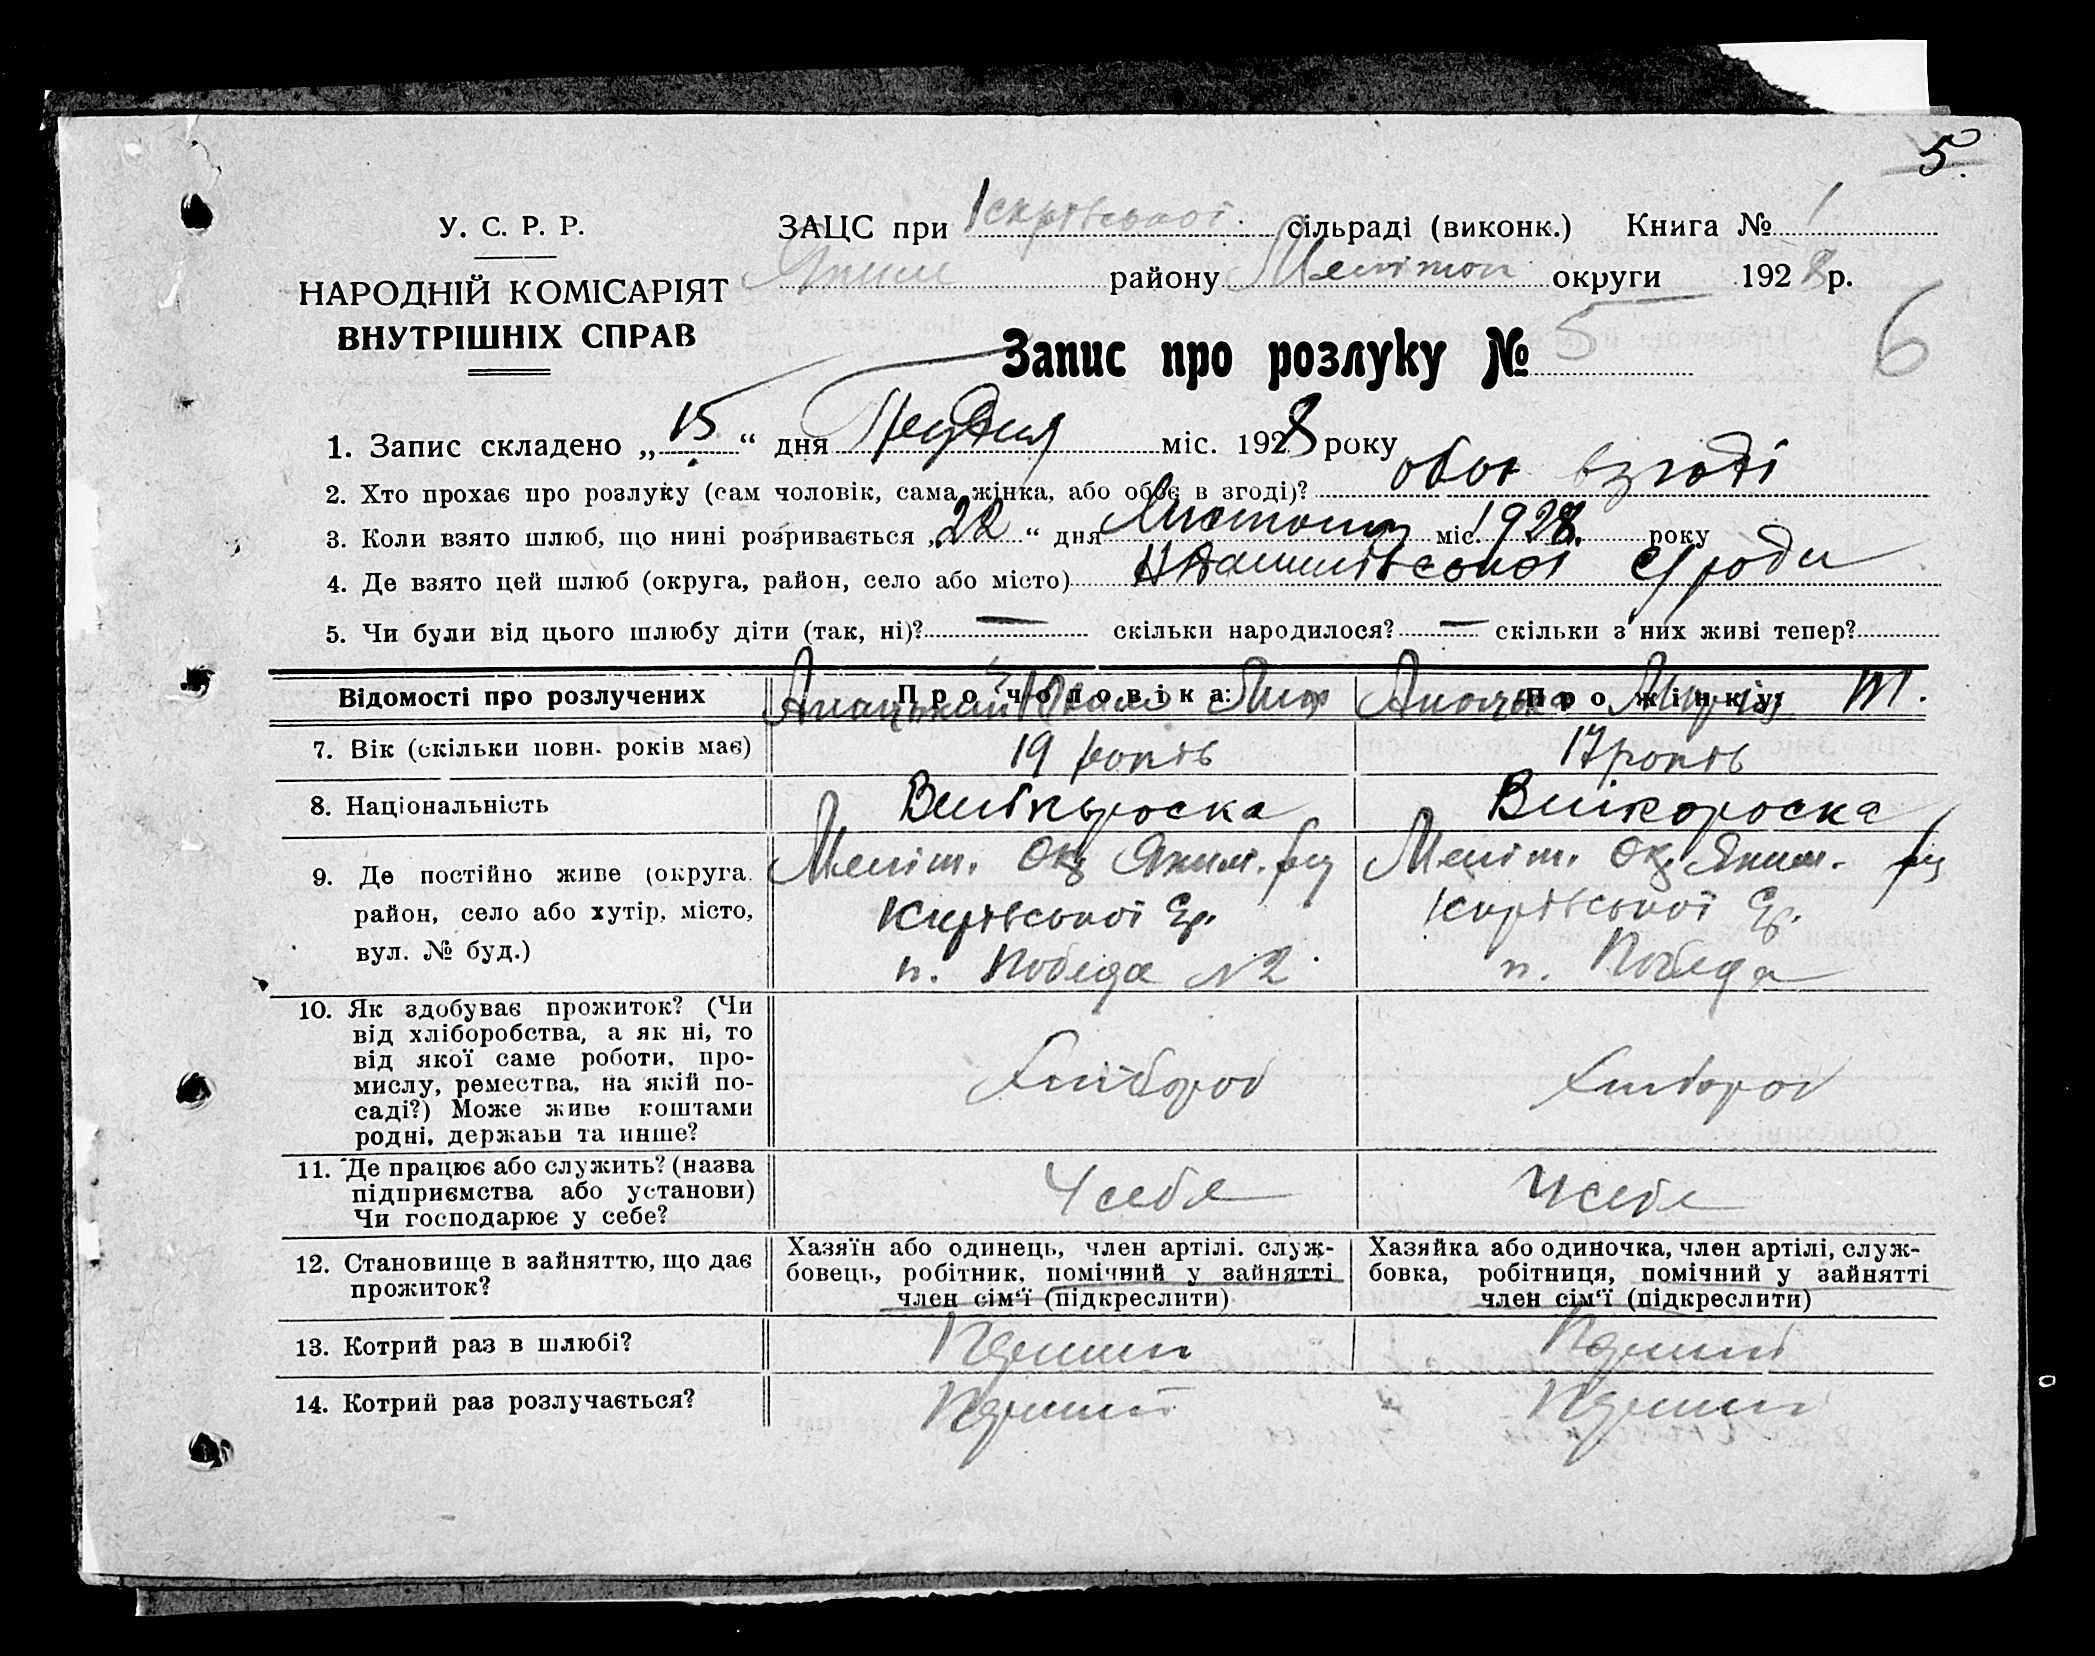 5.
У. С. Р. Р.
НАРОДНІЙ КОМІСАРІЯТ
ВНУТРІШНІХ СПРАВ
ЗАЦС при Іскрівської сільраді (виконк.) Книга № 1
Яким району Мелітоп округи 1928 р.
Запис про розлуку № 5
6
1. Запис складено „15“ дня Грудня міс. 1928 року
2. Хто прохає про розлуку (сам чоловік, сама жінка, або обоє в згоді)? обоє взгоді
3. Коли взято шлюб, що нині розривається „22“ дня Листопад міс. 1928. року
4. Де взято цей шлюб (округа, район, село або місто) с/ради
5. Чи були від цього шлюбу діти (так, ні)? — скільки народилося? — скільки з них живі тепер?
Відомості про розлучених
Про чоловіка:
Про жінку:
7. Вік (скільки повн. років має) 19 років 17 років
8. Національність Виікороска
9. Де постійно живе (округа, район, село або хутір, місто, вул. № буд.)
Меліт. Ок. Яким. рну
Меліт. Ок. Яким. рну
Іскрівської Ср.
Іскрівської Ср.
п. Победа №2
п. Победа
10. Як здобуває прожиток? (Чи
від хліборобства, а як ні, то
від якої саме роботи, про-
мислу, ремества, на якій по-
саді?) Може живе коштами
родні, держави та инше?
Хлібороб
Хлібороб
11. Де працює або служить? (назва
підприємства або установи)
Чи господарює у себе?
У себе
У себе
12. Становище в зайняттю, що дає
прожиток?
Хазяїн або одинець, член артілі, служ-
бовець, робітник, помічний у зайнятті
член сім‘ї (підкреслити)
Хазяйка або одиночка, член артілі, служ-
бовка, робітниця, помічний у зайнятті
член сім‘ї (підкреслити)
13. Котрий раз в шлюбі? Перший Перший
14. Котрий раз розлучається? Перший Перший